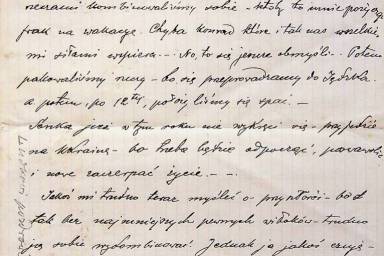 kombinowaliśmy sobie - żeby to mnie pożyczy
frak na wakacje. Chyba Konrad które i tak nas wszelkie
mi siłami wspiera. - No, to się jeszcze obmyśli. Potem
pakowaliśmy rzeczy - bo się przeprowadzamy do
a potem, po 12tej, położyliśmy się spać. -
Janka jeśli w tym roku nie wykręci się - przyjedzie
na Ukrainę - bo trzeba będzie odpocząć,
i nowe zaczerpać życie. - -
Jakoś mi trudno teraz myśleć o przyszłości - bo
tak bez najmniejszych pewnych widoków - trudno
ją sobie wykombinować! Jednak ja jakoś czuję -